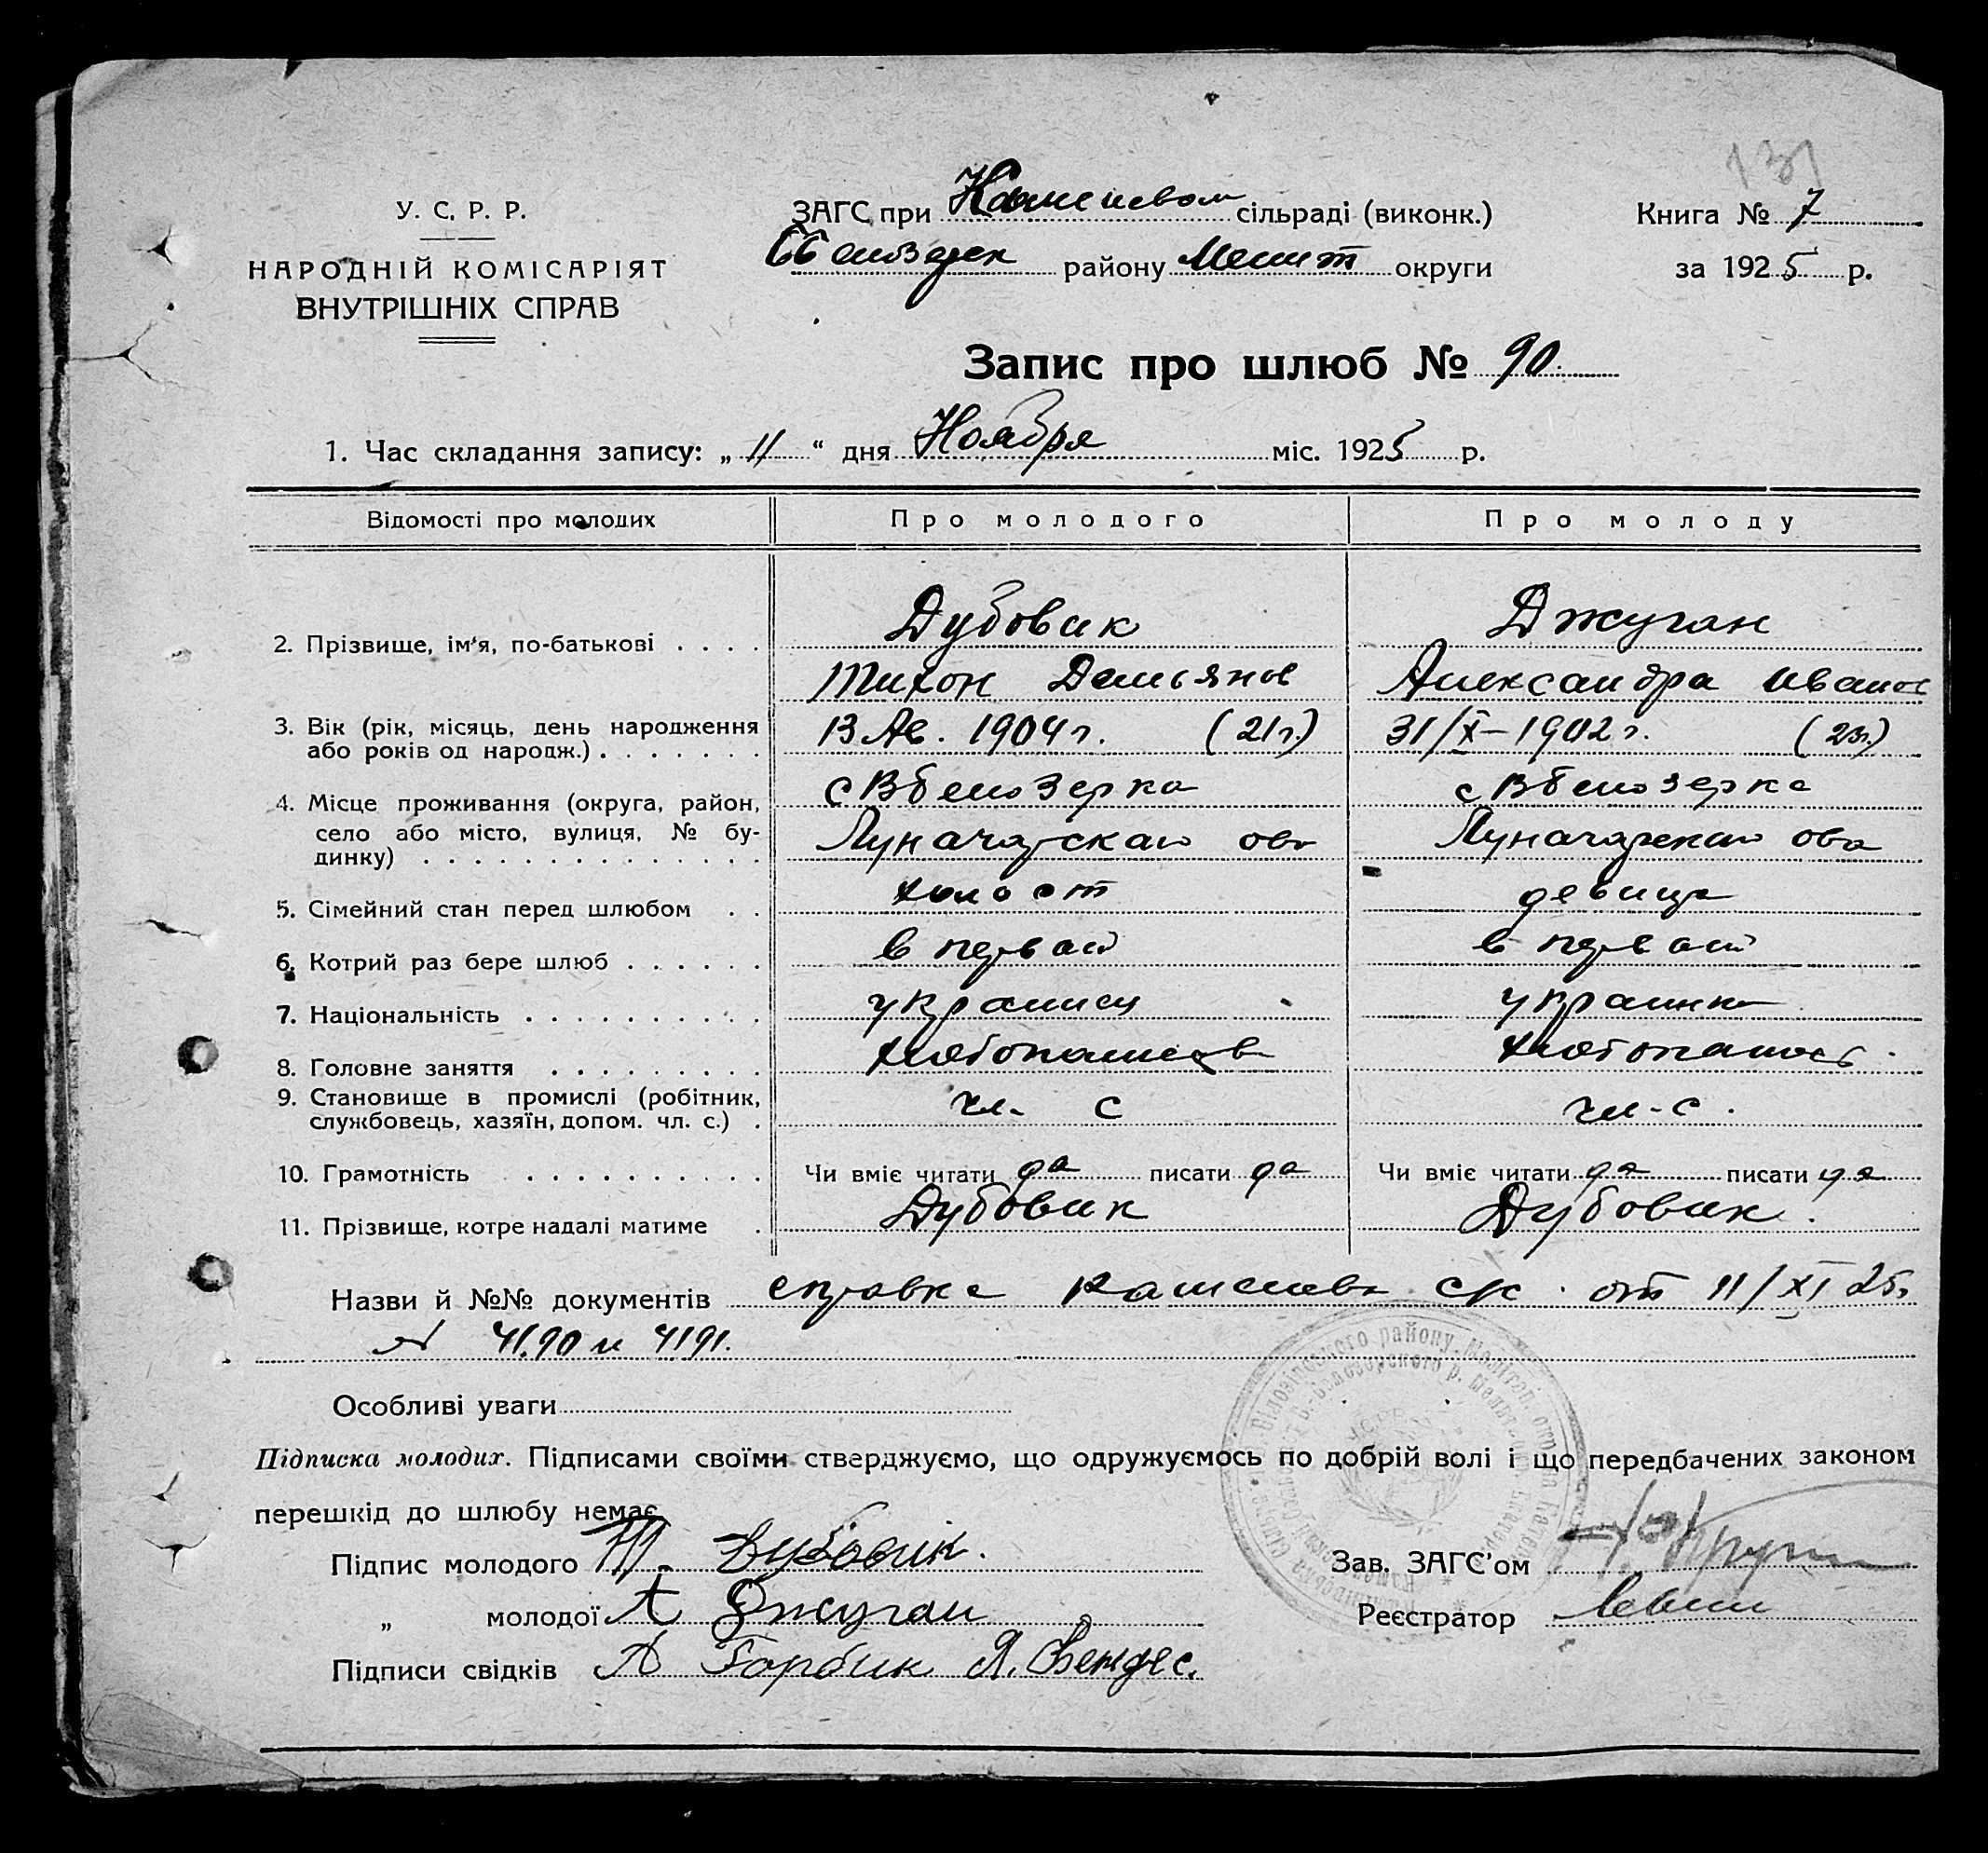 131
У. С. Р. Р.
НАРОДНІЙ КОМІСАРІЯТ
ВНУТРІШНІХ СПРАВ
ЗАГС при Каменском сільраді (виконк.)
району Мелит округи
Книга № 7
за 1925 р.
Запис про шлюб № 90.
1. Час складання запису: „ 11 “ дня Ноября міс. 1925 р.
Відомості про молодих
Про молодого
Про молоду
2. Прізвище, ім'я, по-батькові . . . .
Дубовик
Тихон Демьянов
Джуган
Александра Иванов
3. Вік (рік, місяць, день народження
або років од народж.) . . . . . . .
13 Ав. 1904 г. (21 г.)
31/X–1902 г. (23 г.)
4. Місце проживання (округа, район,
село або місто, вулиця, № бу-
динку) . . . . . . . . . . . . . .
с Вбелозерка
Луначарская ова
с Вбелозерка
Луначарская ова
5. Сімейний стан перед шлюбом . .
холост
девица
6. Котрий раз бере шлюб . . . . . .
в первый
в первый
7. Національність . . . . . . . . . .
украинец
украинка
8. Головне заняття . . . . . . . . .
хлебопашест
хлебопаш
9. Становище в промислі (робітник,
службовець, хазяїн, допом. чл. с.) .
чл. с
чл. с.
10. Грамотність . . . . . . . . . .
Чи вміє читати да писати да
Чи вміє читати да писати да
11. Прізвище, котре надалі матиме .
Дубовик
Дубовик.
Назви й №№ документів справка с/с. от 11/XI 25
N 4190 и 4191.
Особливі уваги
Підписка молодих. Підписами своїми стверджуємо, що одружуємось по добрій волі і що передбачених законом
перешкід до шлюбу немає
Підпис молодого Т. Дубовик.
„ молодої А Джуган
Підписи свідків А Горбик Я.
Зав. ЗАГС'ом
Реєстратор